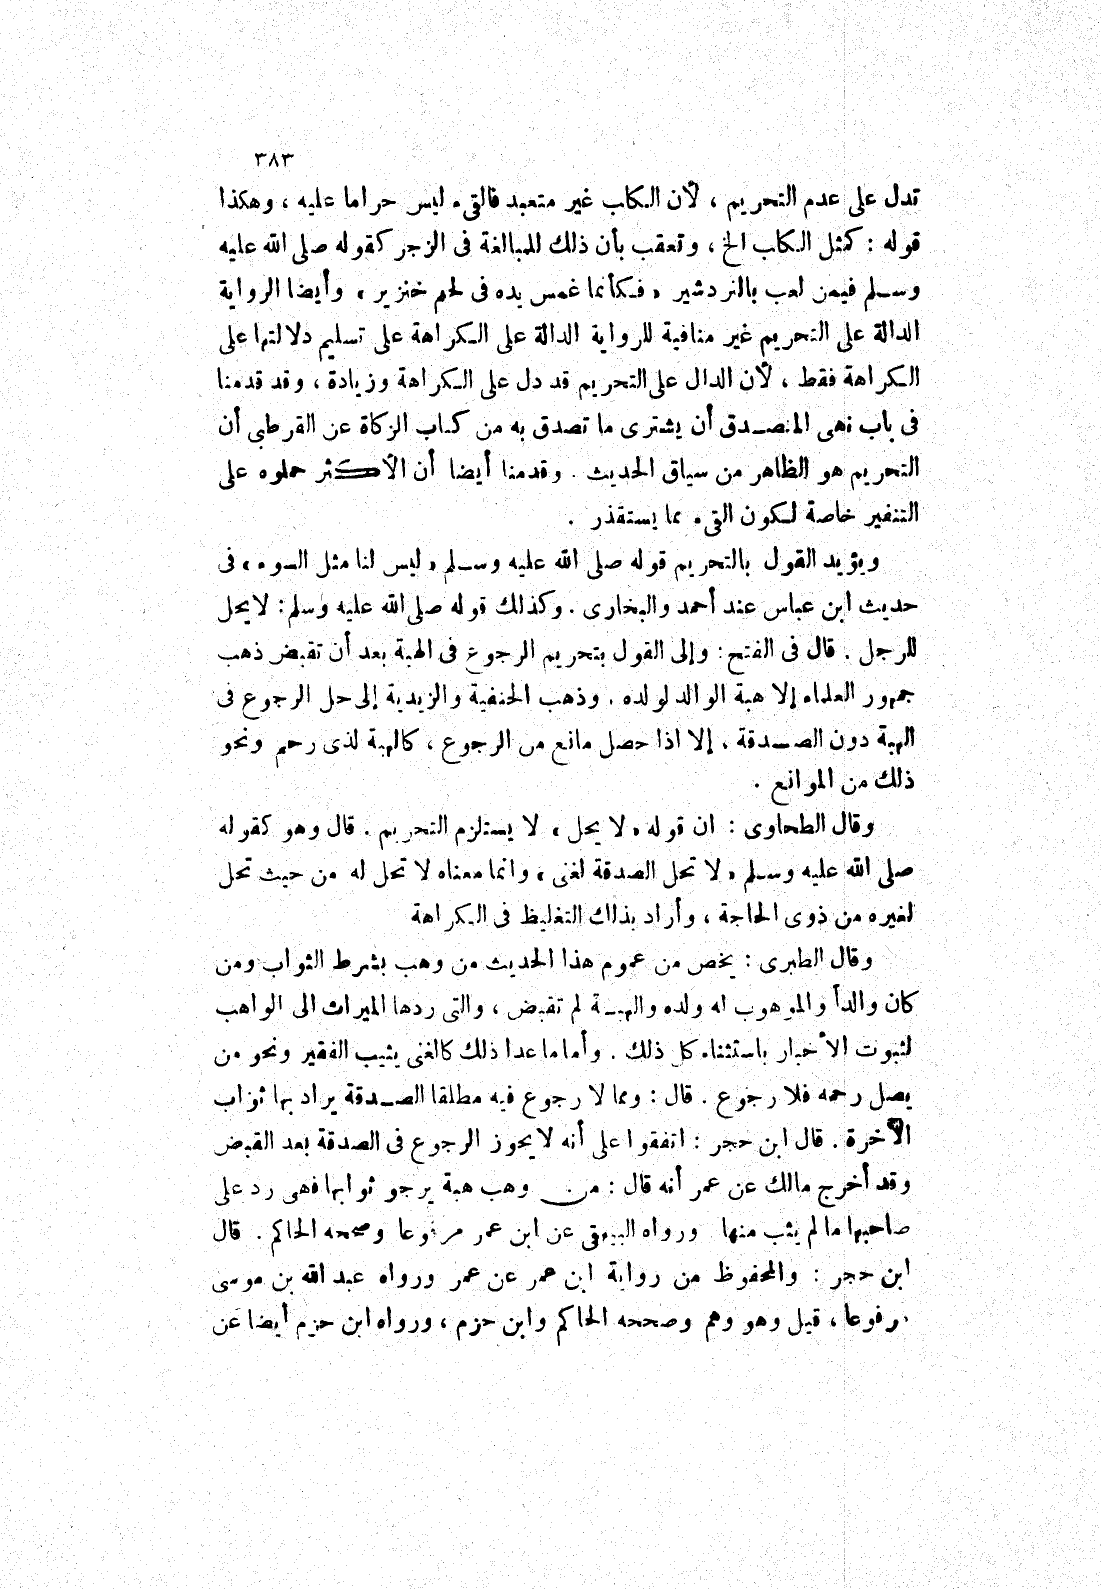 ٣٨٣
تدل على عدم التحريم ، لأن الكلب غير متعبد فالقىء ليس حراما عليه ، وهكذا
قوله : كمثل الكلب الخ ، وتعقب بأن ذلك للمبالغة فى الزجر كقوله صلى الله عليه
وسلم فيمن لعب بالنردشير « فكأنما غمس يده فى لحم خنزير » وأيضا الرواية
الدالة على التحريم غير منافية للرواية الدالة على الكراهة على تسليم دلالتها على
الكراهة فقط ، لأن الدال على التحريم قد دل على الكراهة وزيادة ، وقد قدمنا
فى باب نهى المتصدق أن يشترى ما تصدق به من كتاب الزكاة عن القرطبى أن
التحريم هو الظاهر من سياق الحديث . وقدمنا أيضا أن الأكثر حملوه على
التنفير خاصة لكون القىء مما يستقذر .
ويؤيد القول بالتحريم قوله صلى الله عليه وسلم « ليس لنا مثل السوء » فى
حديث ابن عباس عند أحمد والبخارى . وكذلك قوله صلى الله عليه وسلم : لا يحل
للرجل . قال فى الفتح : وإلى القول بتحريم الرجوع فى الهبة بعد أن تقبض ذهب
جمهور العلماء إلا هبة الوالد لولده . وذهب الحنفية والزيدية إلى حل الرجوع فى
الهبة دون الصدقة ، إلا اذا حصل مانع من الرجوع ، كالهبة لذى رحم ونحو
ذلك من الموانع .
وقال الطحاوى : ان قوله « لا يحل » لا يستلزم التحريم . قال وهو كقوله
صلى الله عليه وسلم « لا تحل الصدقة لغنى » وانما معناه لا تحل له من حيث تحل
لغيره من ذوى الحاجة ، وأراد بذلك التغليظ فى الكراهة
وقال الطبرى : يخص من عموم هذا الحديث من وهب بشرط الثواب ومن
كان والدأ والموهوب له ولده والهبة لم تقبض ، والتى ردها الميراث الى الواهب
لثبوت الأخبار باستثناء كل ذلك . وأما ما عدا ذلك كالغنى يثيب الفقير ونحو من
يصل رحمه فلا رجوع . قال : ومما لا رجوع فيه مطلقا الصدقة يراد بها ثواب
الآخرة . قال ابن حجر : اتفقوا على أنه لا يجوز الرجوع فى الصدقة بعد القبض
وقد أخرج مالك عن عمر أنه قال : من وهب هبة يرجو ثوابها فهى رد على
صاحبها ما لم يثب منها ورواه البيهقى عن ابن عمر مرفوعا وصححه الحاكم . قال
ابن حجر : والمحفوظ من رواية ابن عمر عن عمر ورواه عبد الله بن موسى
مرفوعا ، قيل وهو وهم وصححه الحاكم وابن حزم ، ورواه ابن حزم أيضا عن